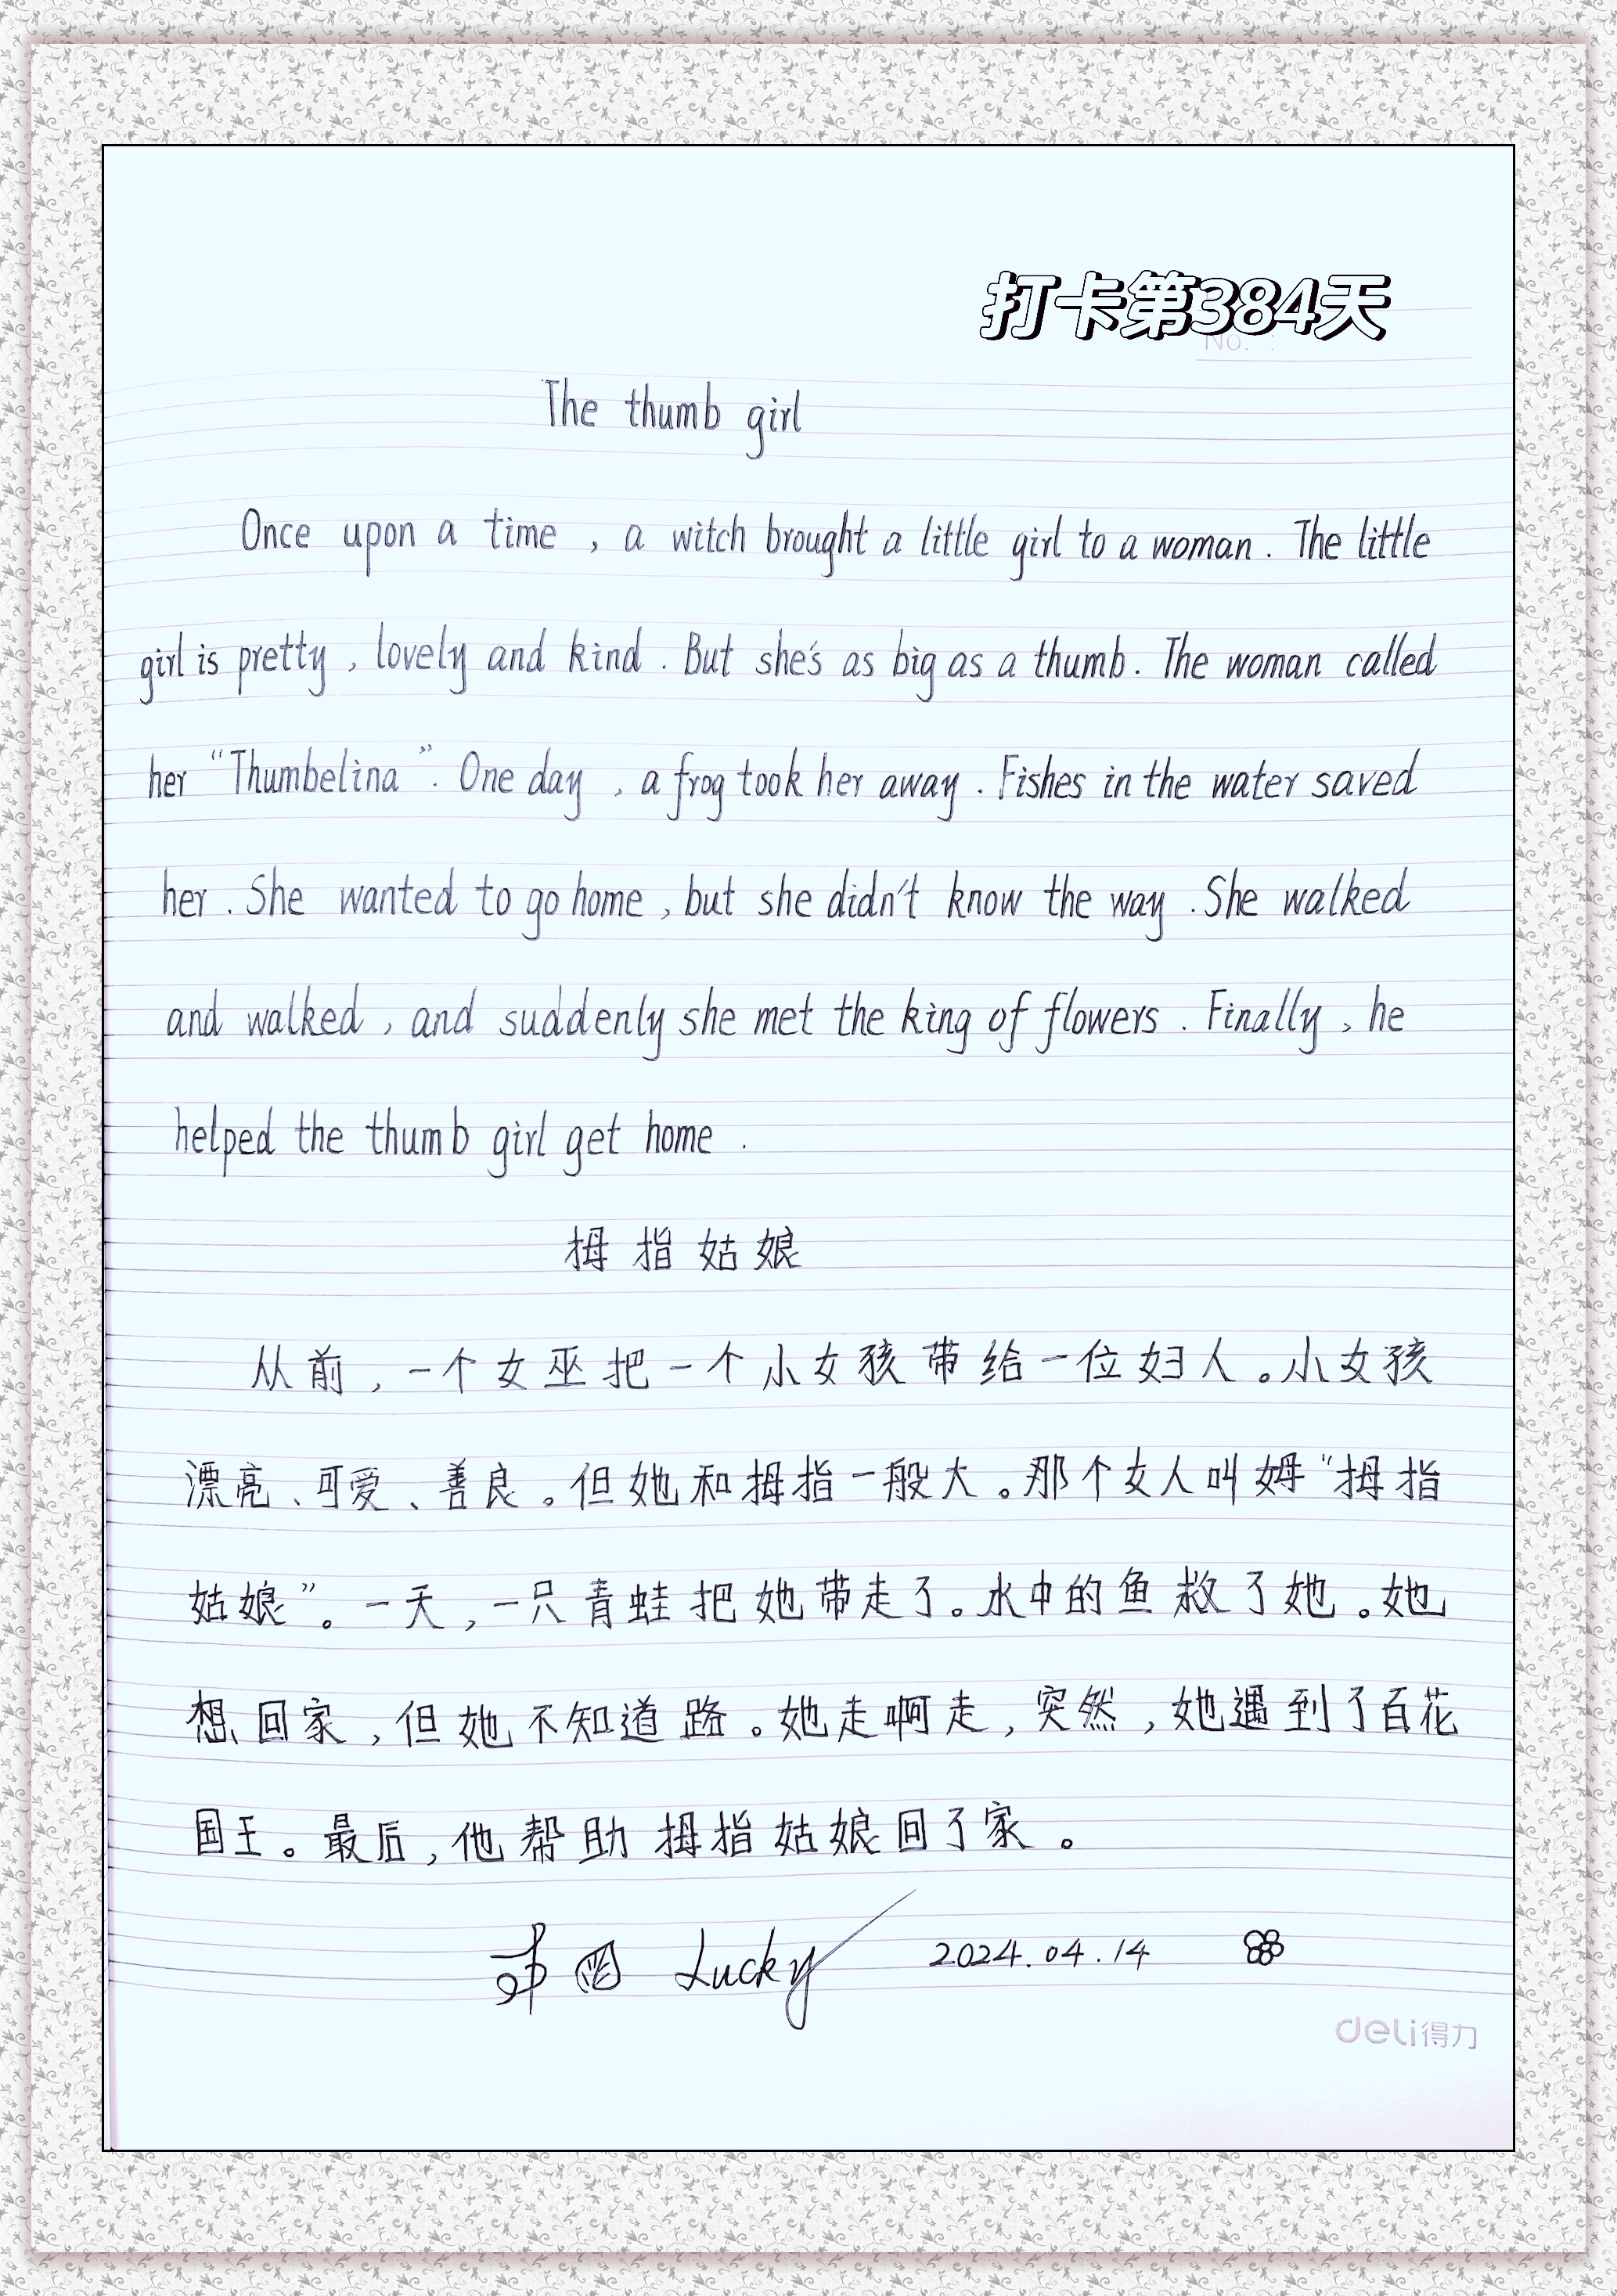 打卡第384天
No. :
The thumb girl
Once upon a time , a witch brought a little girl to a woman . The little
girl is pretty , lovely and kind . But she's as big as a thumb . The woman called
her “Thumbelina ”. One day , a frog took her away . Fishes in the water saved
her . She wanted to go home , but she didn't know the way . She walked
and walked , and suddenly she met the king of flowers . Finally , he
helped the thumb girl get home .
拇指姑娘
从前，一个女巫把一个小女孩带给一位妇人。小女孩
漂亮、可爱、善良。但她和拇指一般大。那个女人叫姆“拇指
姑娘”。一天，一只青蛙把她带走了。水中的鱼救了她。她
想回家，但她不知道路。她走啊走，突然，她遇到了百花
国王。最后，他帮助拇指姑娘回了家。
Lucky 2024.04.14
deli得力